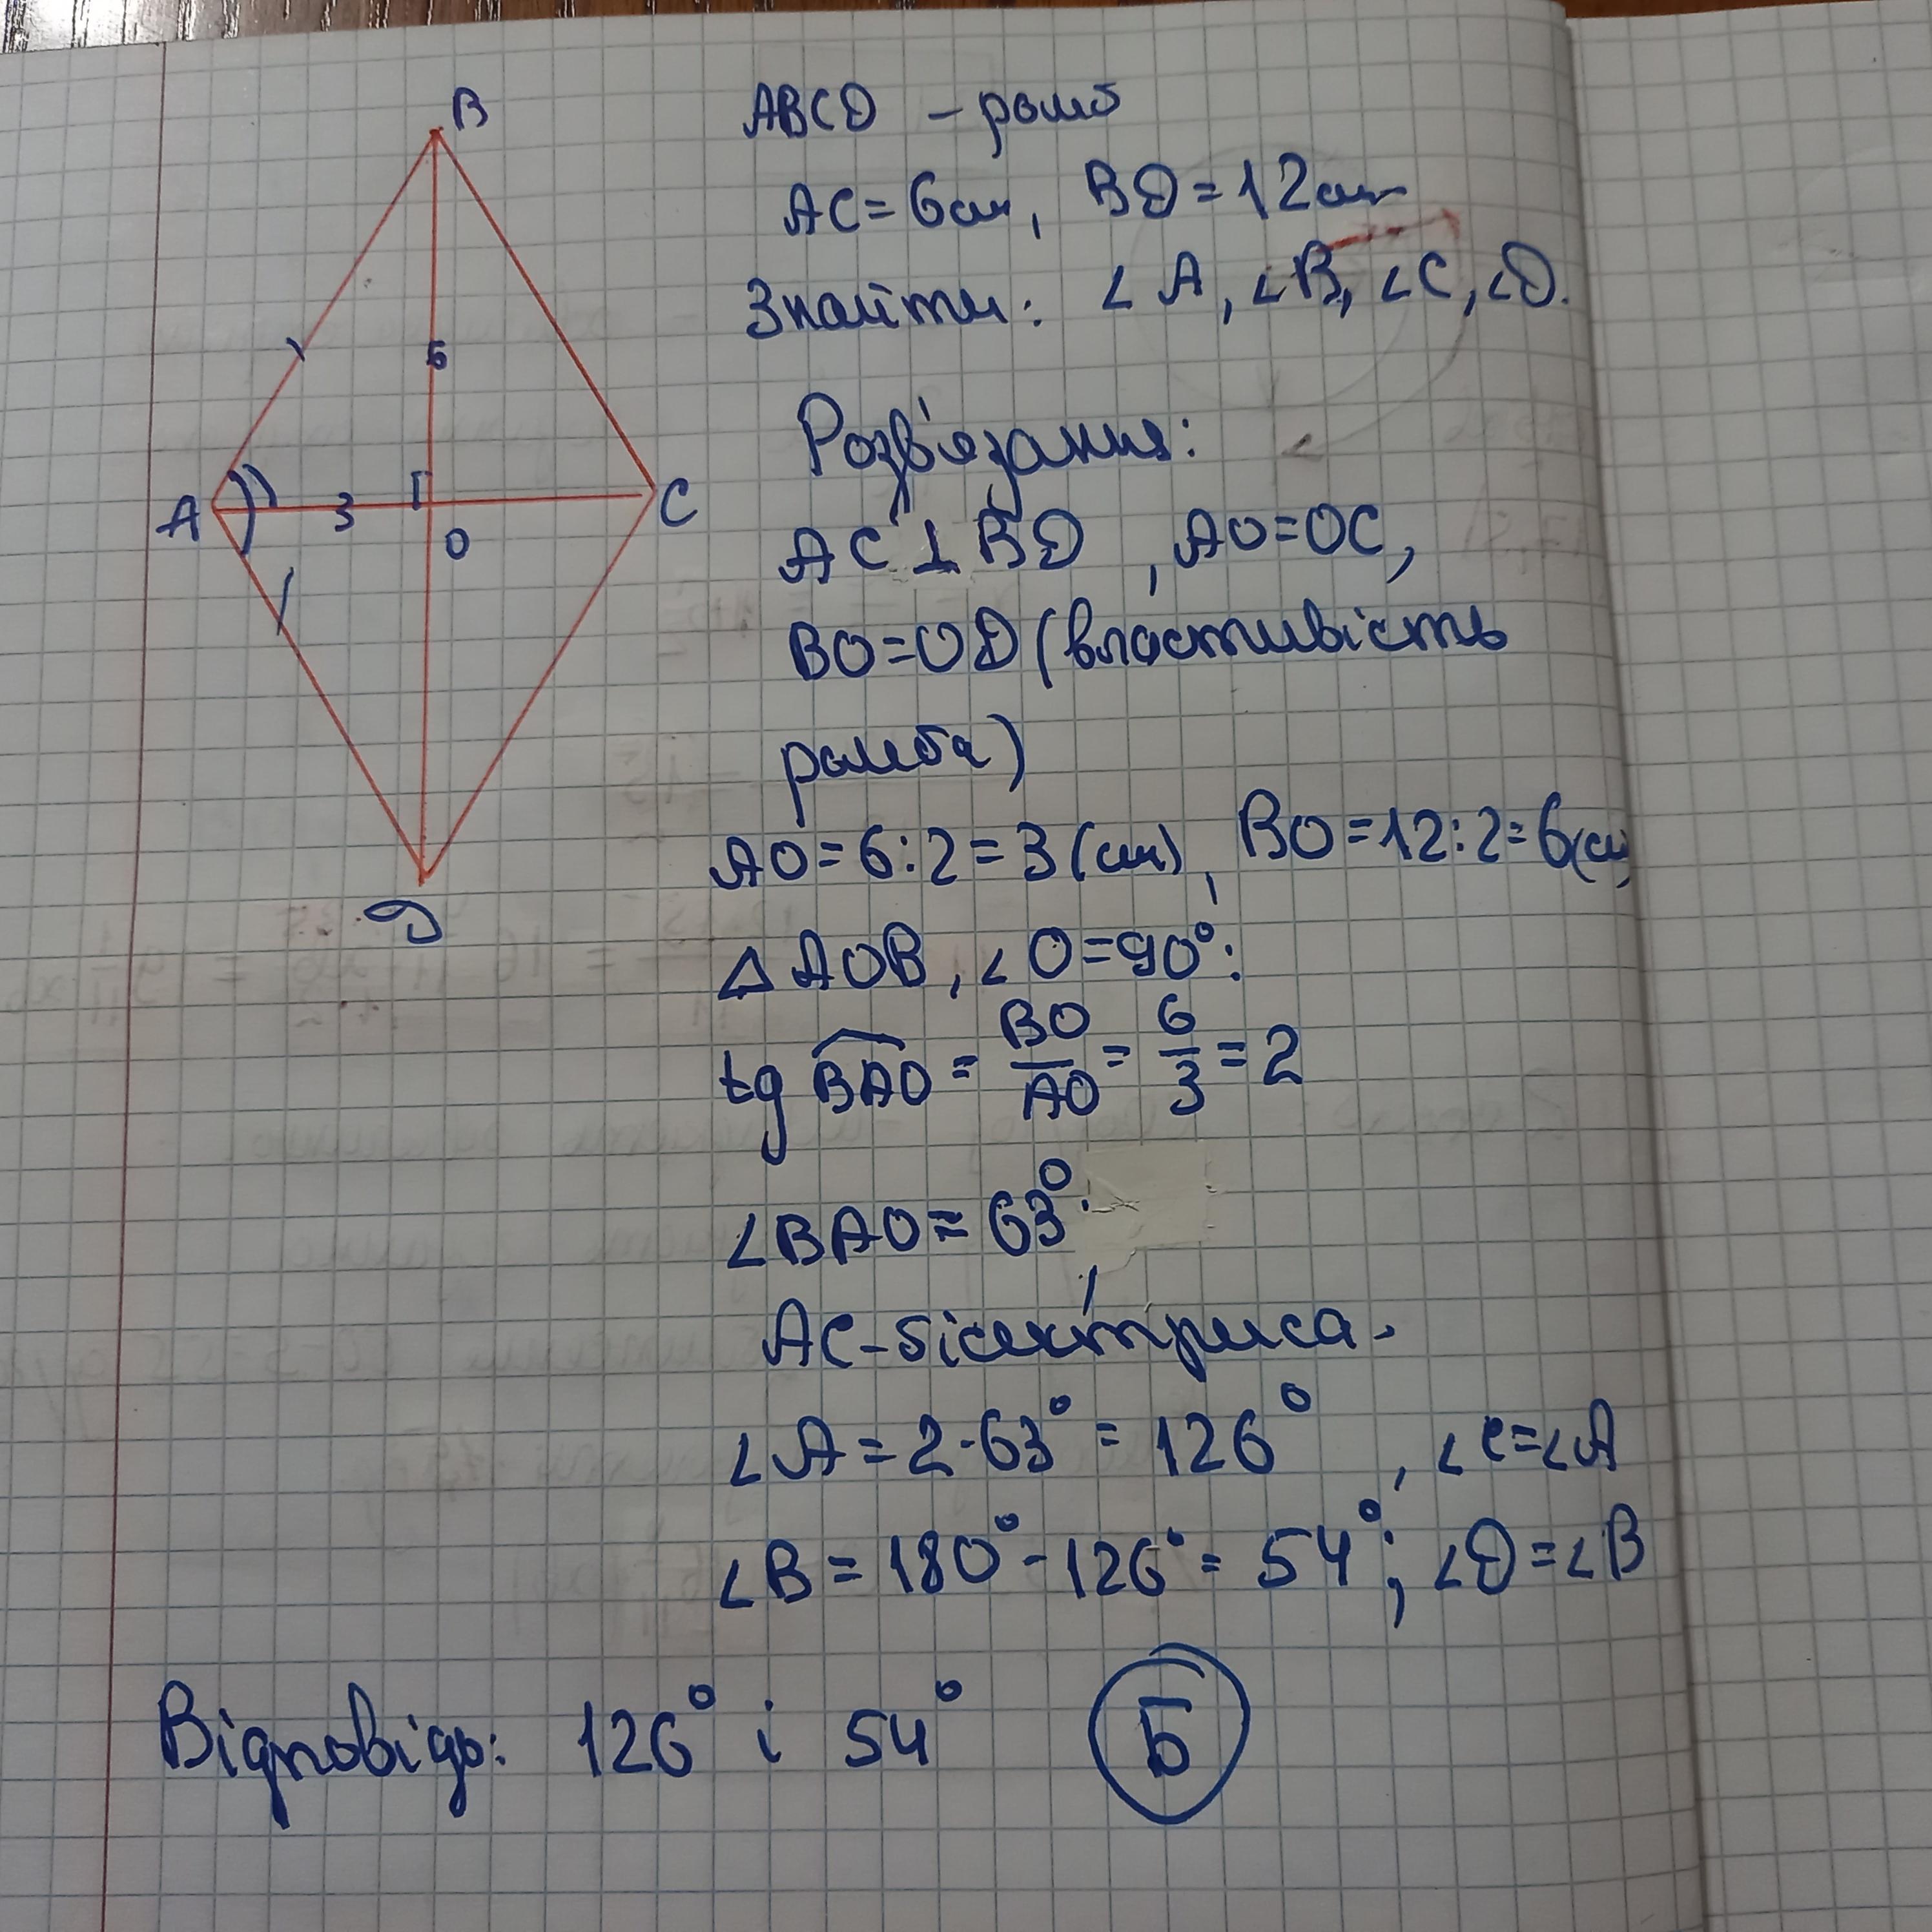 B
A
C
D
O
6
3
ABCD - ромб
AC = 6 см, BD = 12 см
Знайти: ∠A, ∠B, ∠C, ∠D.
Розв'язання:
AC ⊥ BD, AO = OC,
BO = OD (властивість
ромба)
AO = 6 : 2 = 3 (см), BO = 12 : 2 = 6 (см)
△ AOB, ∠O = 90°:
tg BAO = BO/AO = 6/3 = 2
∠BAO ≈ 63°.
AC - бісектриса.
∠A = 2 · 63° = 126°, ∠C = ∠A
∠B = 180° - 126° = 54°; ∠D = ∠B
Відповідь: 126° і 54° Б